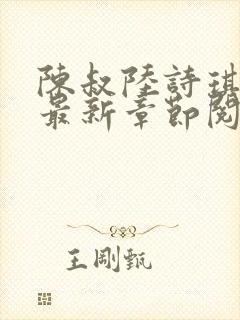 陳叔陸詩琪
最新章節閱
王剛甄